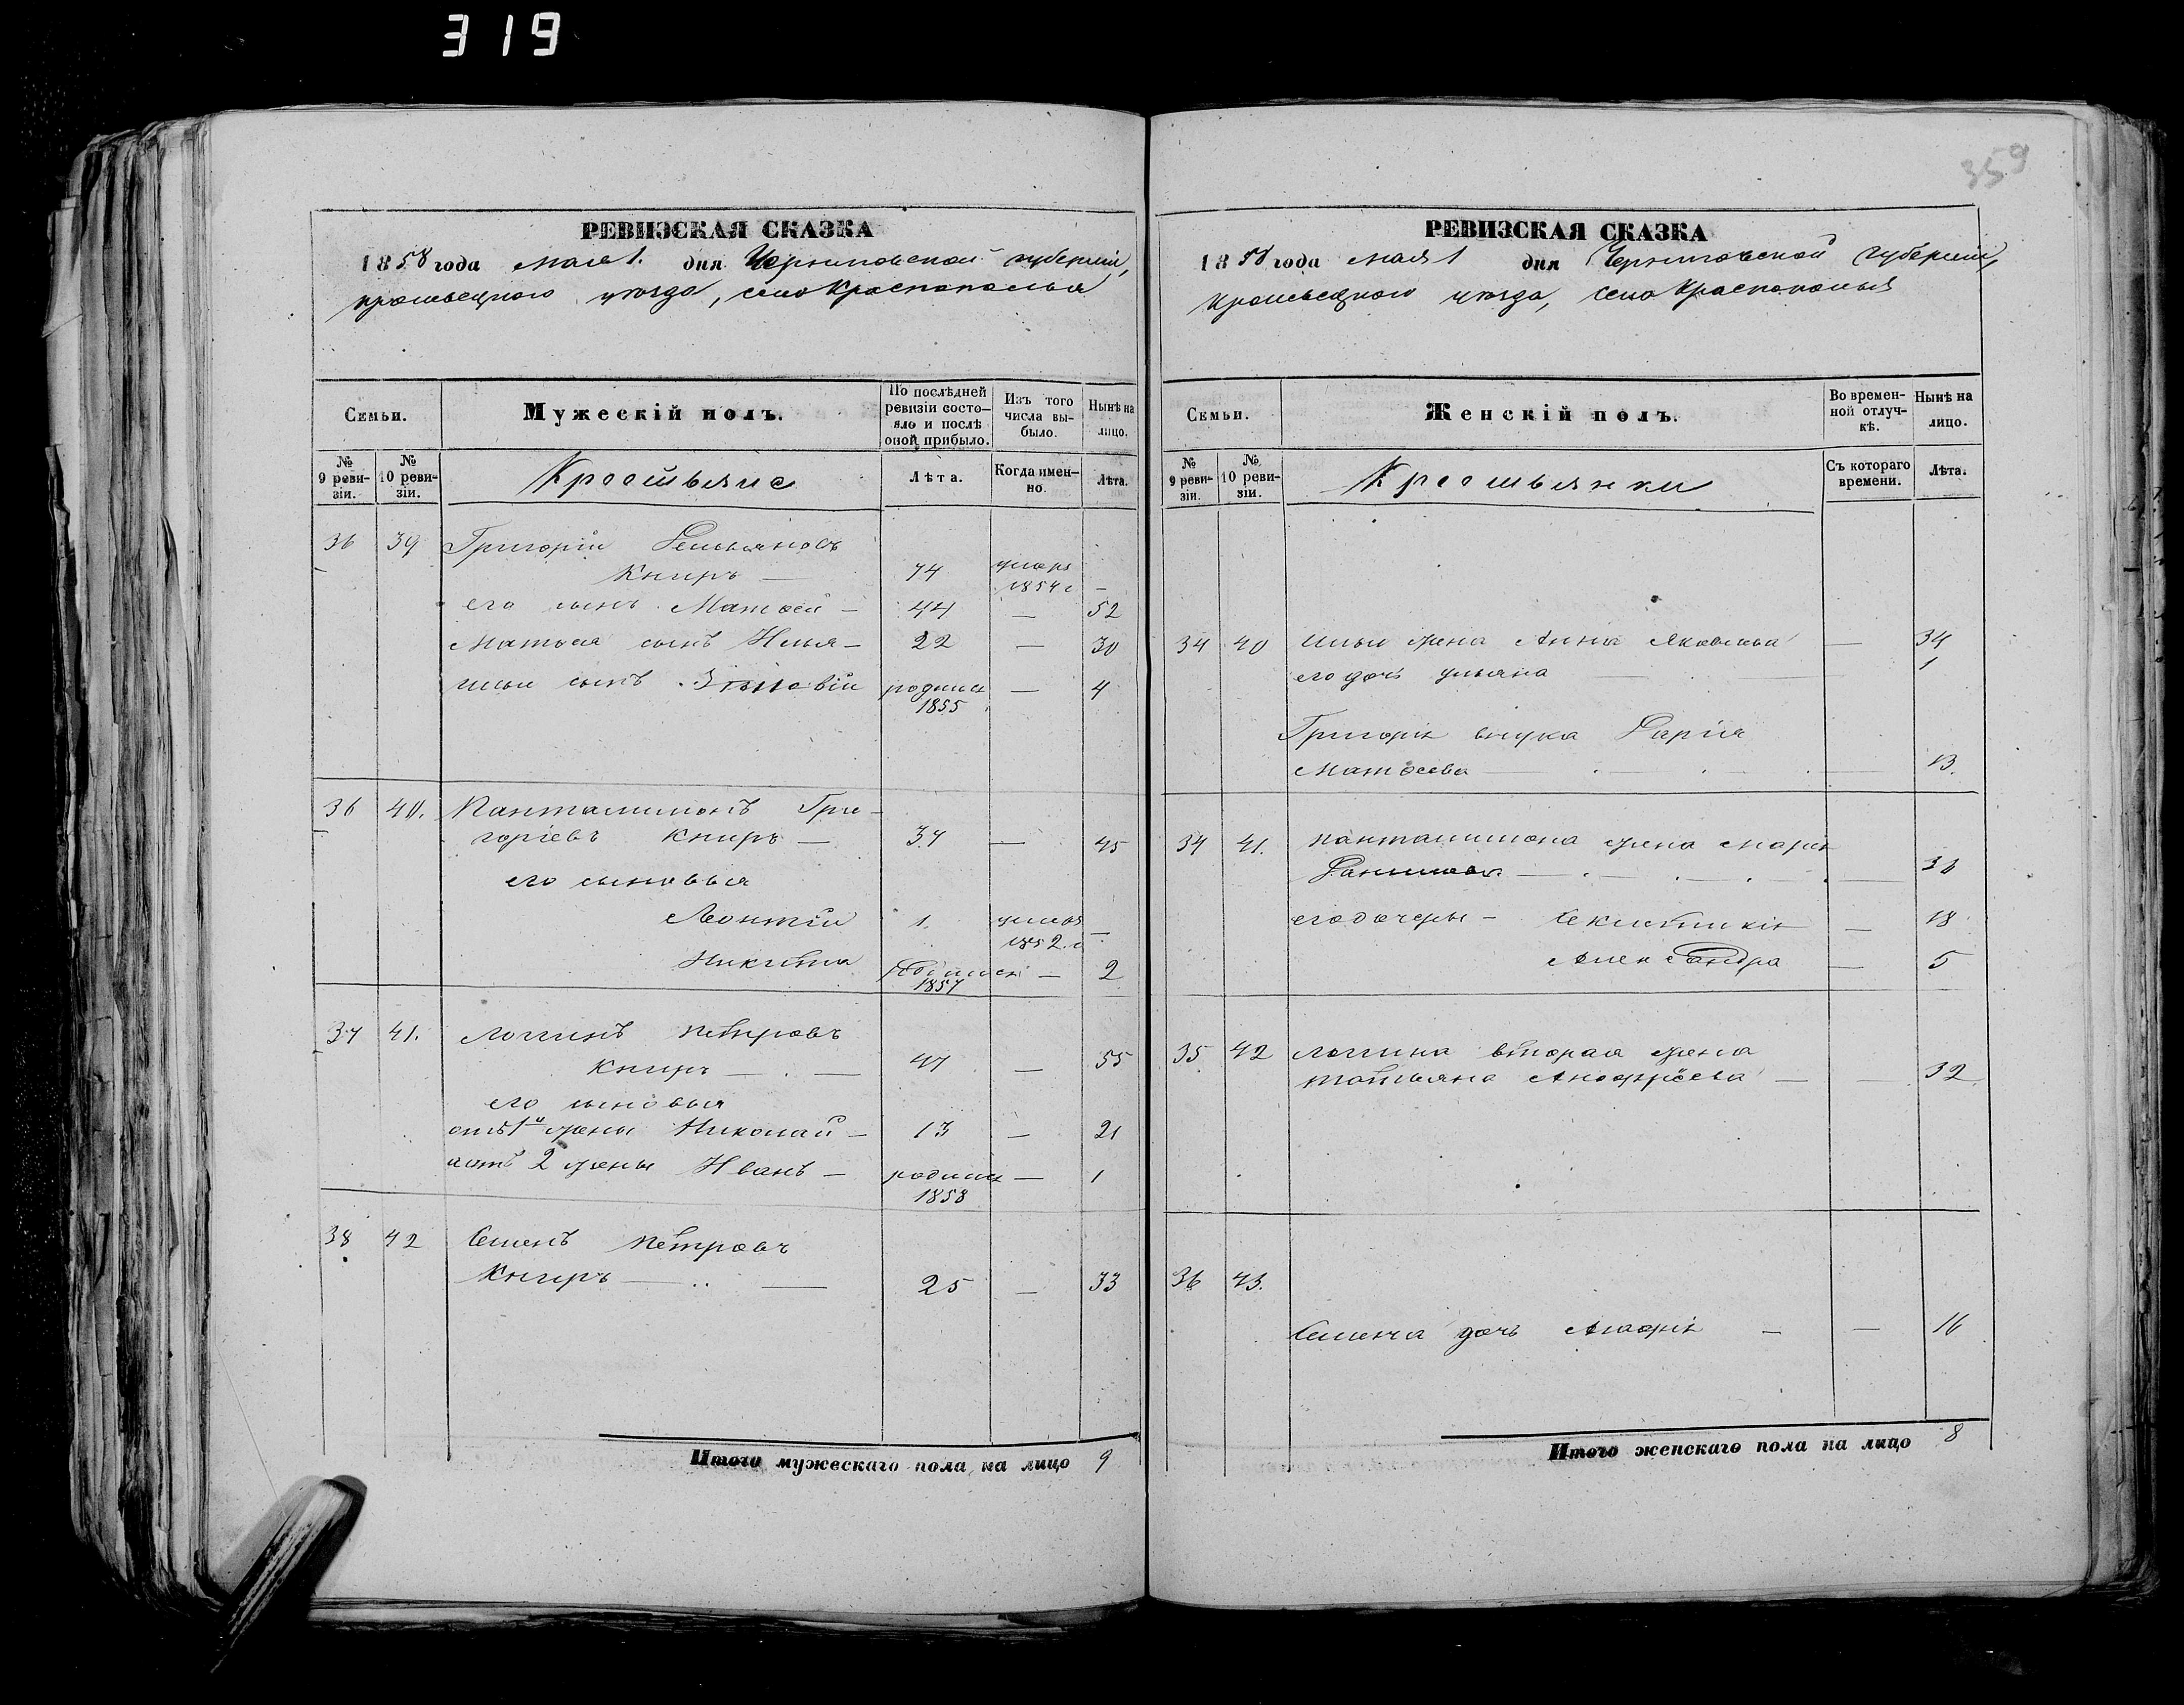 319
359
РЕВИЗСКАЯ СКАЗКА
1858 года мая 1. дня Черниговской губернии,
кролевецкого уезда, село Краснополья
Семьи.
Мужескій полъ.
По послѣдней ревизіи состо-
яло и послѣ
оной прибыло.
Изъ того
числа вы-
было.
Нынѣ на
лицо.
№
9 реви-
зіи.
№
10 реви-
зіи.
Крестьяне
Лѣта.
Когда имен-
но.
Лѣта.
36 39 Григорій Демьяновъ
Книръ — 74 умеръ 1854 г —
его сынъ Матвей — 44 — 52
Матвея сынъ Илья — 22 — 30
Ильи сынъ Зѣновій родился 1855 — 4
36 40. Панталимонъ Гри-
горіевъ Книръ — 37 — 45
его сыновья
Леонтій 1. умеръ 1852. г —
Никита родился 1857 — 2
37 41. Логинъ Петровъ
Книръ — . — 47 — 55
его сыновья
отъ 1й жены Николай — 13 — 21
отъ 2 жены Иванъ — родился 1858 — 1
38 42 Семенъ Петровъ
Книръ — .. — 25 — 33
Итого мужескаго пола на лицо 9
РЕВИЗСКАЯ СКАЗКА
1858 года мая 1 дня Черниговской губернии,
кролевецкого уезда, село Краснополья
Семьи.
Женскій полъ.
Во времен-
ной отлуч-
кѣ.
Нынѣ на
лицо.
№
9 реви-
зіи.
№
10 реви-
зіи.
Крестьянки
Съ котораго
времени.
Лѣта.
34 40 Ильи жена Анна Яковлева — 34
его дочь Ульяна — — 1
Григорія внука Дарія
Матвеева — . — . — . — 13.
34 41. Панталимона жена Марія
Данилова — . — . — . — 36
его дочеры — Секлитикія — 18
Александра — 5
35 42 Логина вторая жена
Татьяна Анофріева — — 32
36 43.
Семена дочь Агафія — — 16
Итого женскаго пола на лицо 8